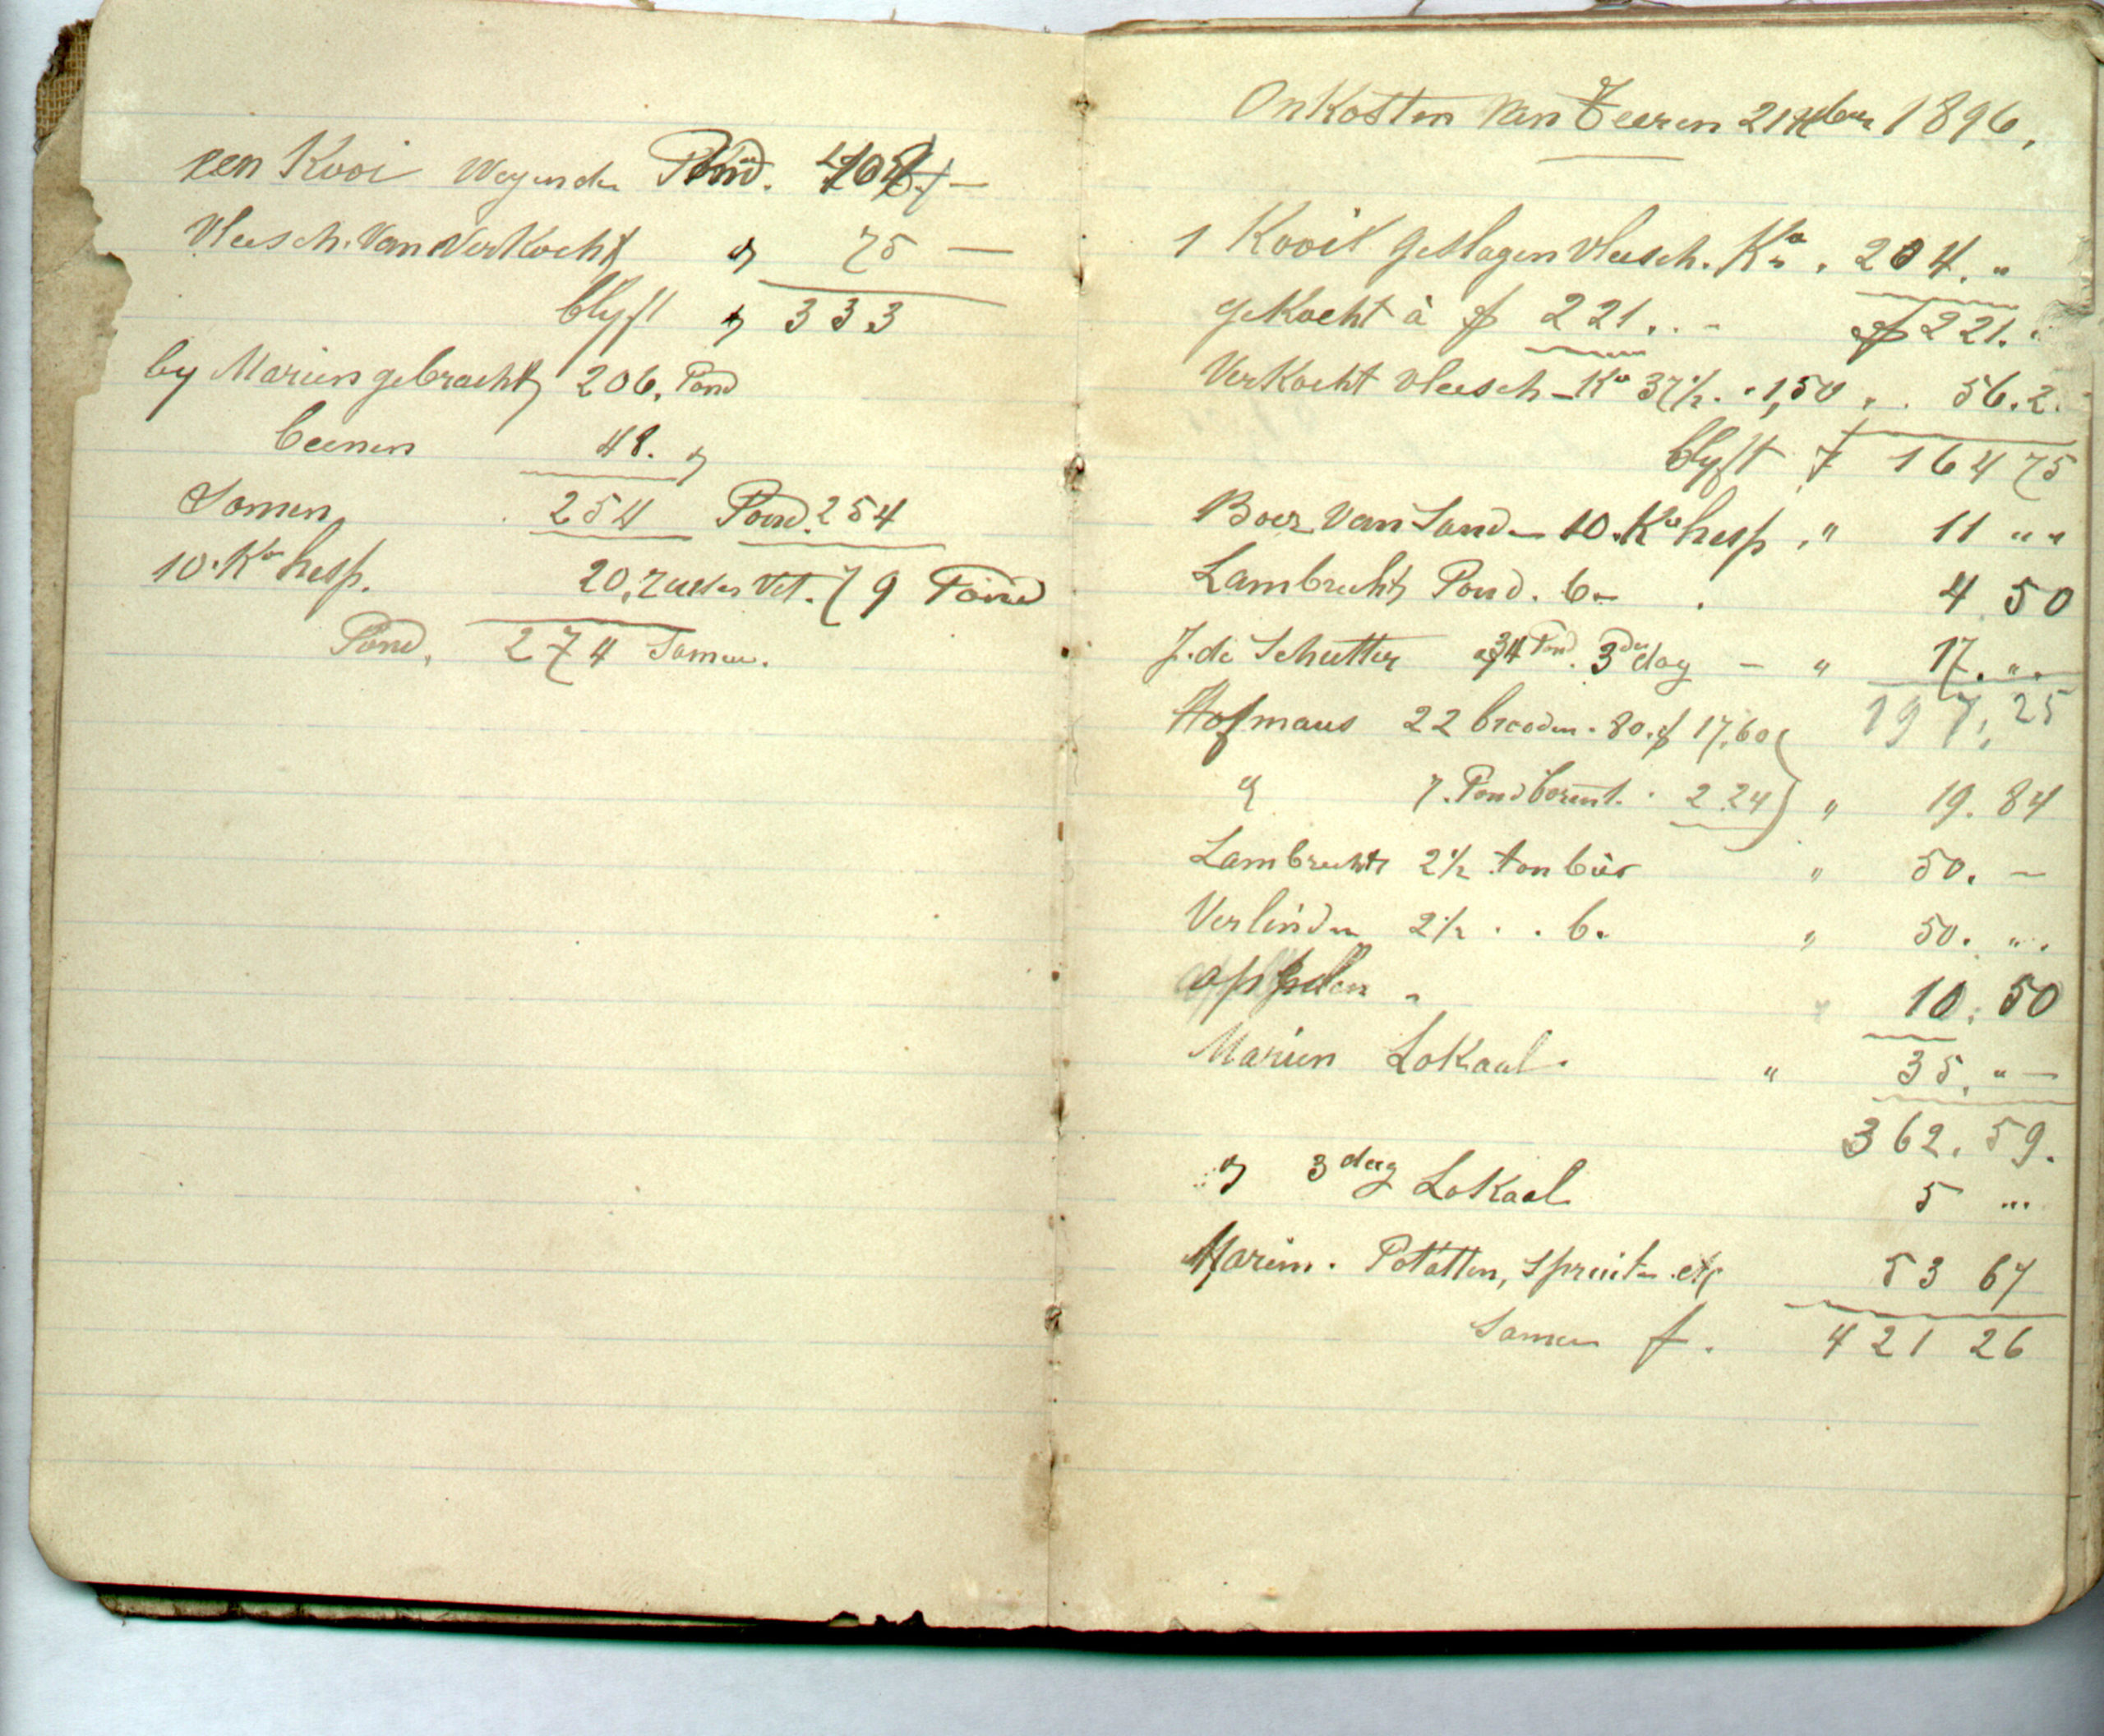 een Kooi Wegende Pond. 408 —
Vleesch. Van Verkocht „ 75 —
blyft „ 333
by Marien gebracht 206, Pond
beenen 48. „
Samen 254 Pond. 254
10. Ko hesp. 20, Vet. 79 Pond
Pond, 274 Samen.
Onkosten Van Teeren 21 1896,
1 Kooi geslagen Vleesch. Ko. 204. "
gekocht à f 221. . - f 221.
Verkocht Vleesch - Ko 37 1/2. . 1,50 . . 56.2
blyft f 164 75
Boer Van Sande 10. Ko hesp. " 11 " "
Lambrechts Pond. 6 - . 4. 50
J. de Schutter 34 Pond. 3de dag - " 17. "
197, 25
Hofmans 22 brooden. 80. f 17,60
„ 7. Pond 2.24 " 19. 84
Lambrechts 2 1/2 ton bier " 50. —
Verlinden 2 1/2 . . b. " 50. "
appelen - " 10. 50
Marien Lokaal. " 35. " —
362. 59.
„ 3 dag Lokaal 5 ...
Marien. Potatten, spruiten etc 53 67
Samen f. 421 26